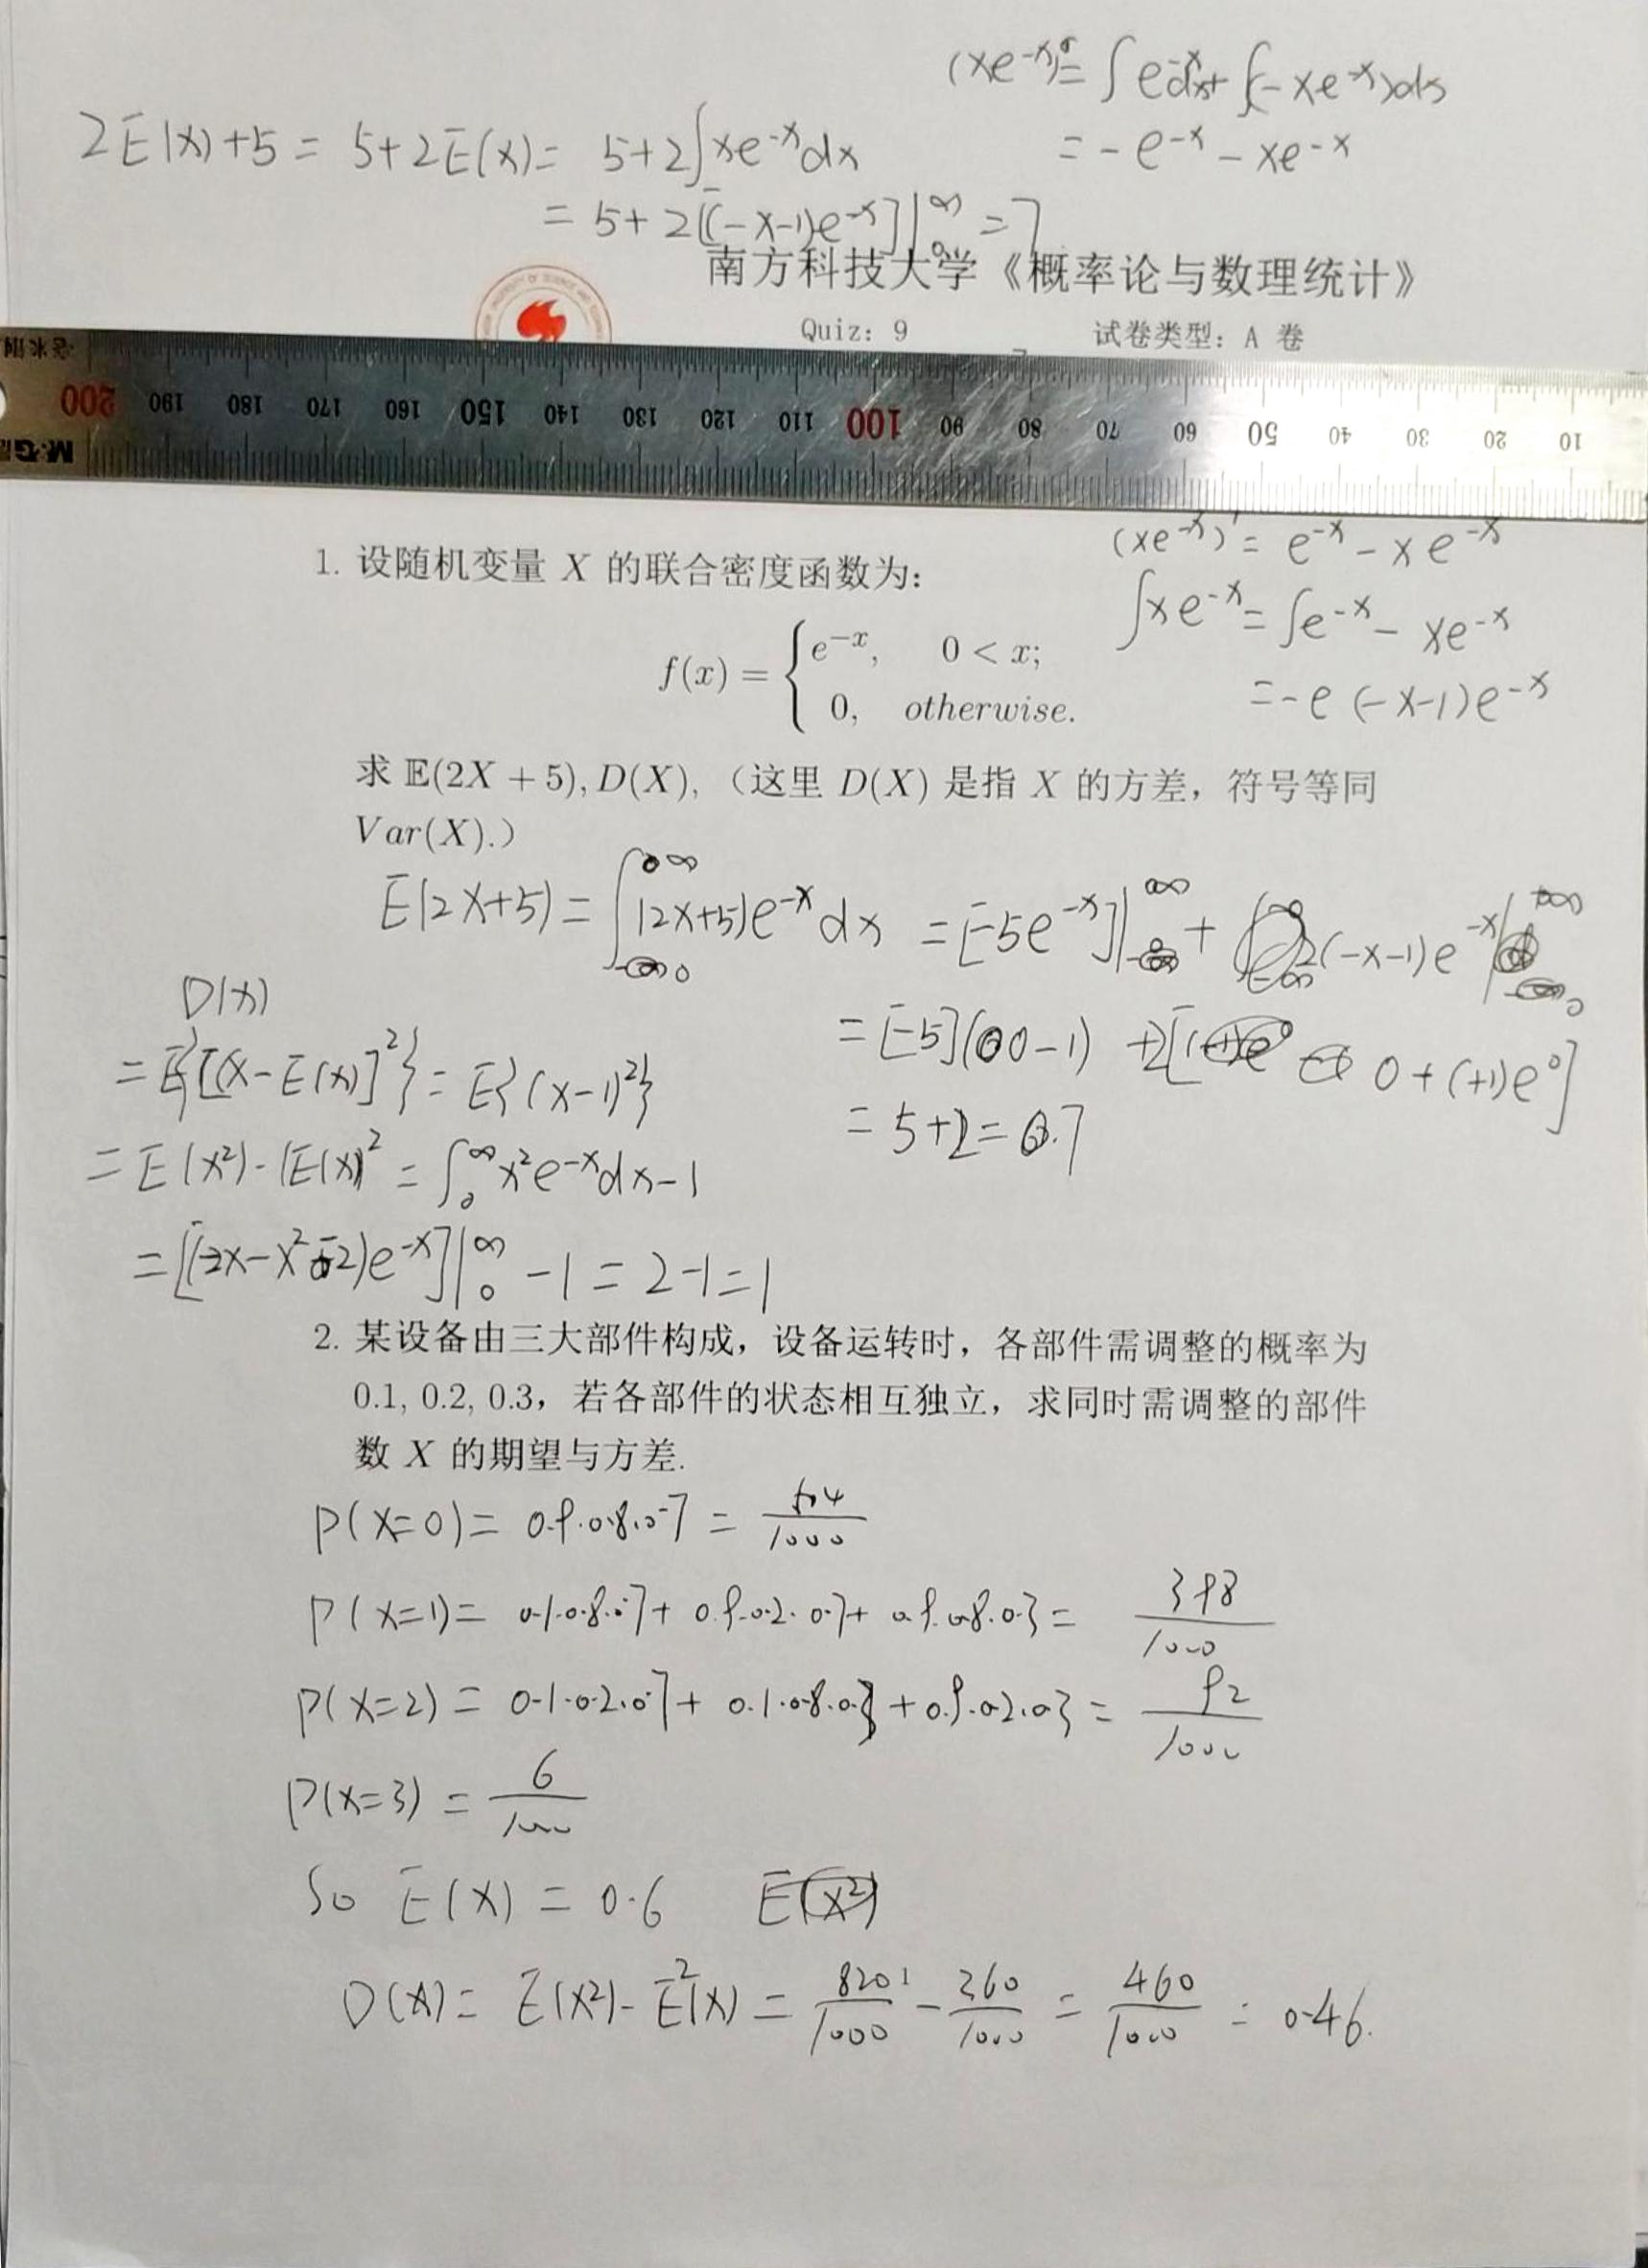 (xe⁻ˣ) = ∫e⁻ˣdx + ∫(-xe⁻ˣ)dx
= -e⁻ˣ - xe⁻ˣ
2E(x)+5 = 5+2E(x) = 5+2∫xe⁻ˣdx
= 5+2[(-x-1)e⁻ˣ]|₀^∞ = 7
南方科技大学《概率论与数理统计》
Quiz: 9 试卷类型: A 卷
200 190 180 170 160 150 140 130 120 110 100 90 80 70 60 50 40 30 20 10
M&G
(xe⁻ˣ)' = e⁻ˣ - xe⁻ˣ
1. 设随机变量 X 的联合密度函数为:
∫xe⁻ˣ = ∫e⁻ˣ - xe⁻ˣ
f(x) = { e⁻ˣ, 0 < x;
0, otherwise.
= -e (-x-1)e⁻ˣ
求 𝔼(2X + 5), D(X), (这里 D(X) 是指 X 的方差, 符号等同
Var(X).)
E(2x+5) = ∫₀^∞ (2x+5)e⁻ˣdx = [-5e⁻ˣ]|₀^∞ + 2(-x-1)e⁻ˣ|₀^∞
= [-5](0-1) +2[0+(+1)e⁰]
= 5+2=7
D(x)
= E{[x-E(x)]²} = E{(x-1)²}
= E(x²)-(E(x))² = ∫₀^∞ x²e⁻ˣdx-1
= [(-2x-x²-2)e⁻ˣ]|₀^∞ -1 = 2-1=1
2. 某设备由三大部件构成, 设备运转时, 各部件需调整的概率为
0.1, 0.2, 0.3, 若各部件的状态相互独立, 求同时需调整的部件
数 X 的期望与方差.
P(X=0) = 0.9·0.8·0.7 = 504/1000
P(X=1) = 0.1·0.8·0.7 + 0.9·0.2·0.7 + 0.9·0.8·0.3 = 398/1000
P(X=2) = 0.1·0.2·0.7 + 0.1·0.8·0.3 + 0.9·0.2·0.3 = 92/1000
P(X=3) = 6/1000
So E(X) = 0.6 E(X²)
D(X) = E(X²)-E²(X) = 820/1000 - 360/1000 = 460/1000 = 0.46.